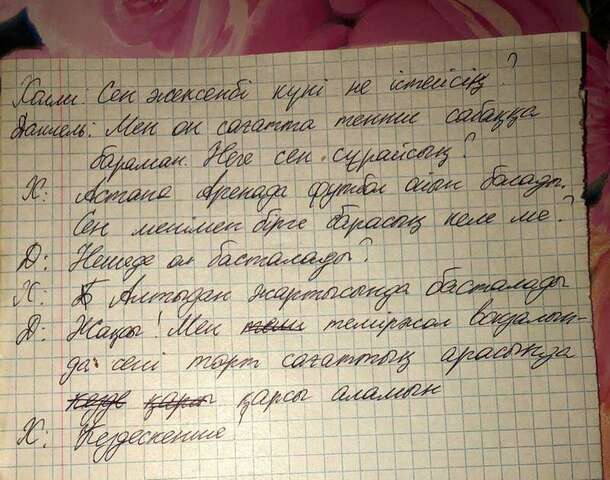 Халли: Сен жексенбі күні не істейсің?
Даниель: Мен он сағатта теннис сабаққа
бараман. Неге сен сұрайсың?
Х: Астана Аренада футбол ойын болады.
Сен менімен бірге барасың келе ме?
Д: Нешеде ол басталады?
Х: Алтыдан жартысында басталады
Д: Жақсы! Мен теміржол вокзалын-
да сені төрт сағаттың арасында
қарсы аламын
Х: Кездескенше